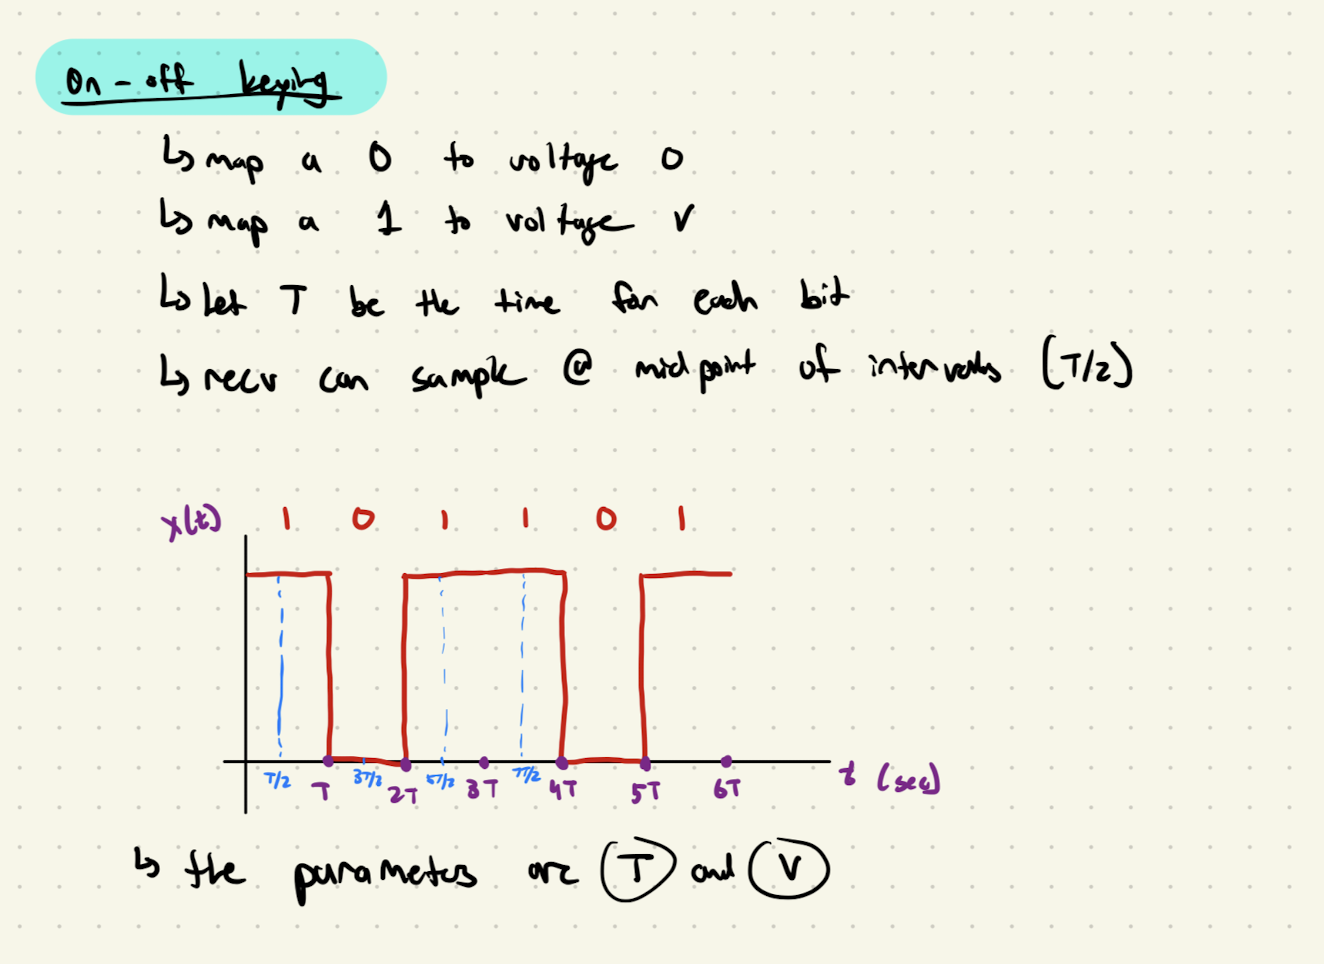 On-off keying
↳ map a 0 to voltage 0
↳ map a 1 to voltage V
↳ Let T be the time for each bit
↳ recv can sample @ midpoint of intervals (T/2)
x(t) 1 0 1 1 0 1
T/2 T 3T/2 2T 5T/2 3T 7T/2 4T 5T 6T t (sec)
↳ the parameters are T and V